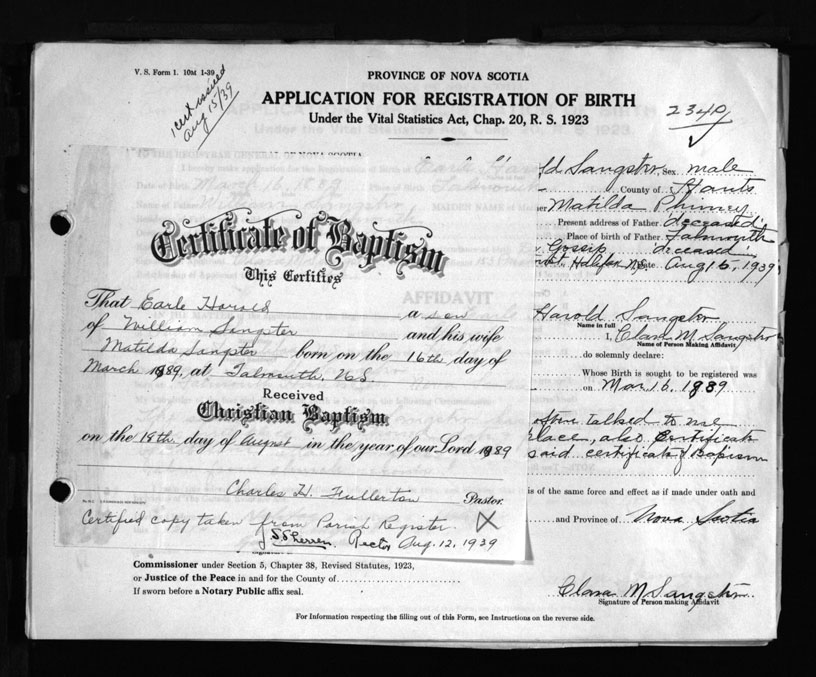 V. S. Form 1. 10M 1-39
1 cert issued
Aug 15/39
PROVINCE OF NOVA SCOTIA
APPLICATION FOR REGISTRATION OF BIRTH
Under the Vital Statistics Act, Chap. 20, R. S. 1923
2340
ld Sangster Sex male
County of Hants
Matilda Phinney
Present address of Father deceased
Place of birth of Father Falmouth
Gossip deceased
Halifax N.S. Date Aug 16, 1939
Certificate of Baptism
This Certifies
That Earle Harold a son
of William Sangster and his wife
Matilda Sangster born on the 16th day of
March 1889, at Falmouth, N.S.
Received
Christian Baptism
on the 18th day of August in the year of our Lord 1889
Charles H. Fullerton Pastor.
Certified copy taken from Parish Register. X
Rector Aug. 12, 1939
Harold Sangster
Name in full
I, Clara M Sangster
Name of Person Making Affidavit
do solemnly declare:
Whose Birth is sought to be registered was
on Mar. 16, 1889
talked to me
place, also Certificate
said certificate of Baptism
is of the same force and effect as if made under oath and
and Province of Nova Scotia
Commissioner under Section 5, Chapter 38, Revised Statutes, 1923,
or Justice of the Peace in and for the County of
If sworn before a Notary Public affix seal.
Clara M Sangster
Signature of Person making Affidavit
For Information respecting the filling out of this Form, see Instructions on the reverse side.